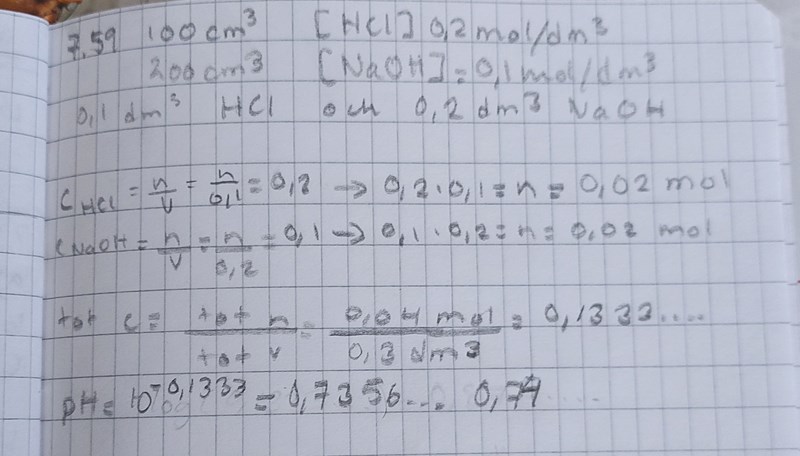 7.59 100 cm³ [HCl] 0,2 mol/dm³
200 cm³ [NaOH] = 0,1 mol/dm³
0,1 dm³ HCl och 0,2 dm³ NaOH
C HCl = n/V = n/0,1 = 0,2 → 0,2 · 0,1 = n = 0,02 mol
C NaOH = n/V = n/0,2 = 0,1 → 0,1 · 0,2 = n = 0,02 mol
tot c = tot n/tot v = 0,04 mol/0,3 dm³ = 0,1333....
pH = 10^-0,1333 = 0,7356... 0,74